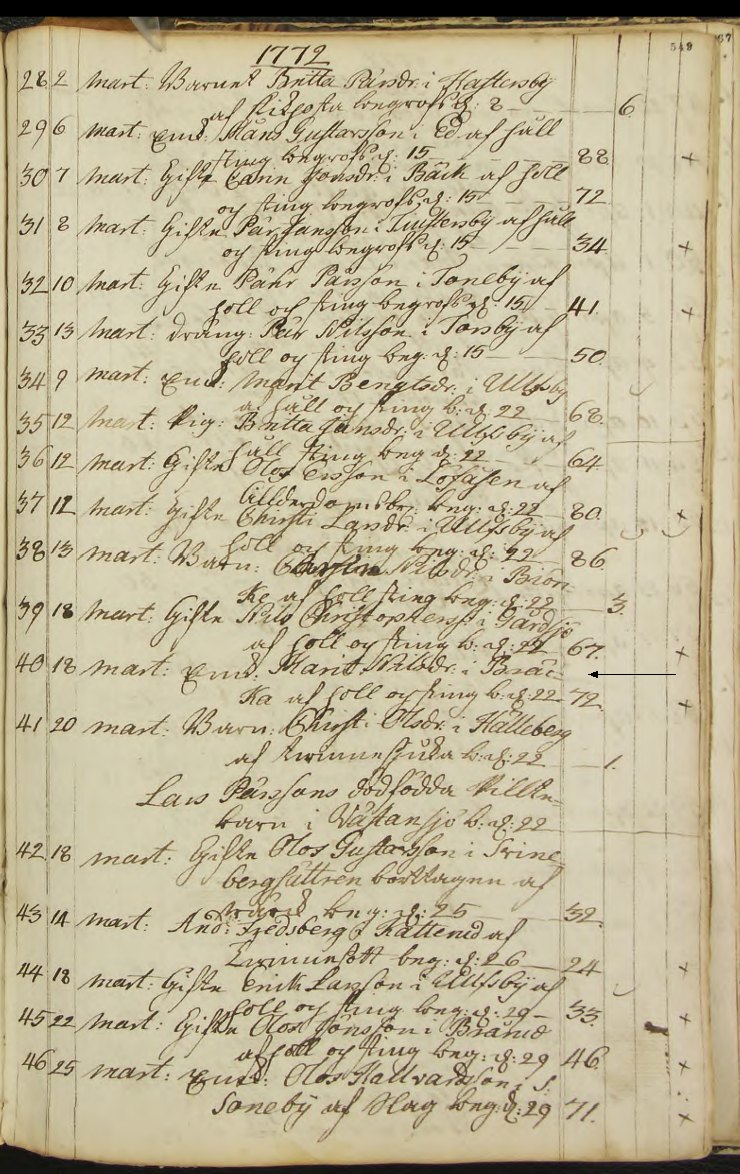 549 67
1772
28 2 Mart: Barnet Britta Pärsdr: i Hastersby
begrofs d: 8 6
29 6 mart: Måns Gustafsson i Ed af håll
sting begrofs d: 15 88 +
30 7 mart: Gifte Jonsdr: i Bäck af håll
og sting begrofs d: 15 72
31 8 mart: Giften Pär Jansson i Tuttersby af håll
og sting begrofs d: 15 34 +
32 10 mart: Giften Pähr Pärsson i Toneby af
holl och sting begrofs d: 15 41 +
33 13 mart: dräng: Pär Nilsson i Torsby af
holl og sting beg: d: 15 50
34 9 mart: Marit Bengtsdr: i Ullfsby
af håll og sting b: d: 22 68
35 12 mart: Pig: Britta Jansdr: i Ullfsby af
håll sting beg d: 22 64
36 12 mart: Giften Olof Ersson i Löfåsen af
beg: d: 22 80 +
37 12 mart: Giften Christi Larsdr: i Ullfsby af
holl og sting beg: d: 22 86
38 13 mart: Barn: Nilsdr: i Biörn-
Ke af holl sting beg: d: 22 3.
39 18 mart: Giften Nils Christophersson i Gårdsjö
af holl og sting b: d: 22 67. +
40 18 mart: Marit Nilsdr: i Bräc-
Ka af holl og sting b: d: 22 72. +
41 20 mart: Barn: Christi Olsdr: i Hälleberg
af b: d: 22 1.
Lars Pärssons dödfödda Pillte-
barn i Västansjö b: d: 22
42 18 mart: Giften Olof Gustafsson i Trine-
bergsättren borttagen af
beg: d: 25 32.
43 14 mart: And: Fredsberg i Kättened af
beg: d: 26 24 +
44 18 mart: Giften Erich Larsson i Ullfsby af
holl og sting beg: d: 29 33. +
45 22 mart: Giften Olof Jönsson i Bråned
af holl og sting beg: d: 29 46. +
46 25 mart: Olof Hallvardsson i S:
Soneby af Slag beg: d: 29 71. +